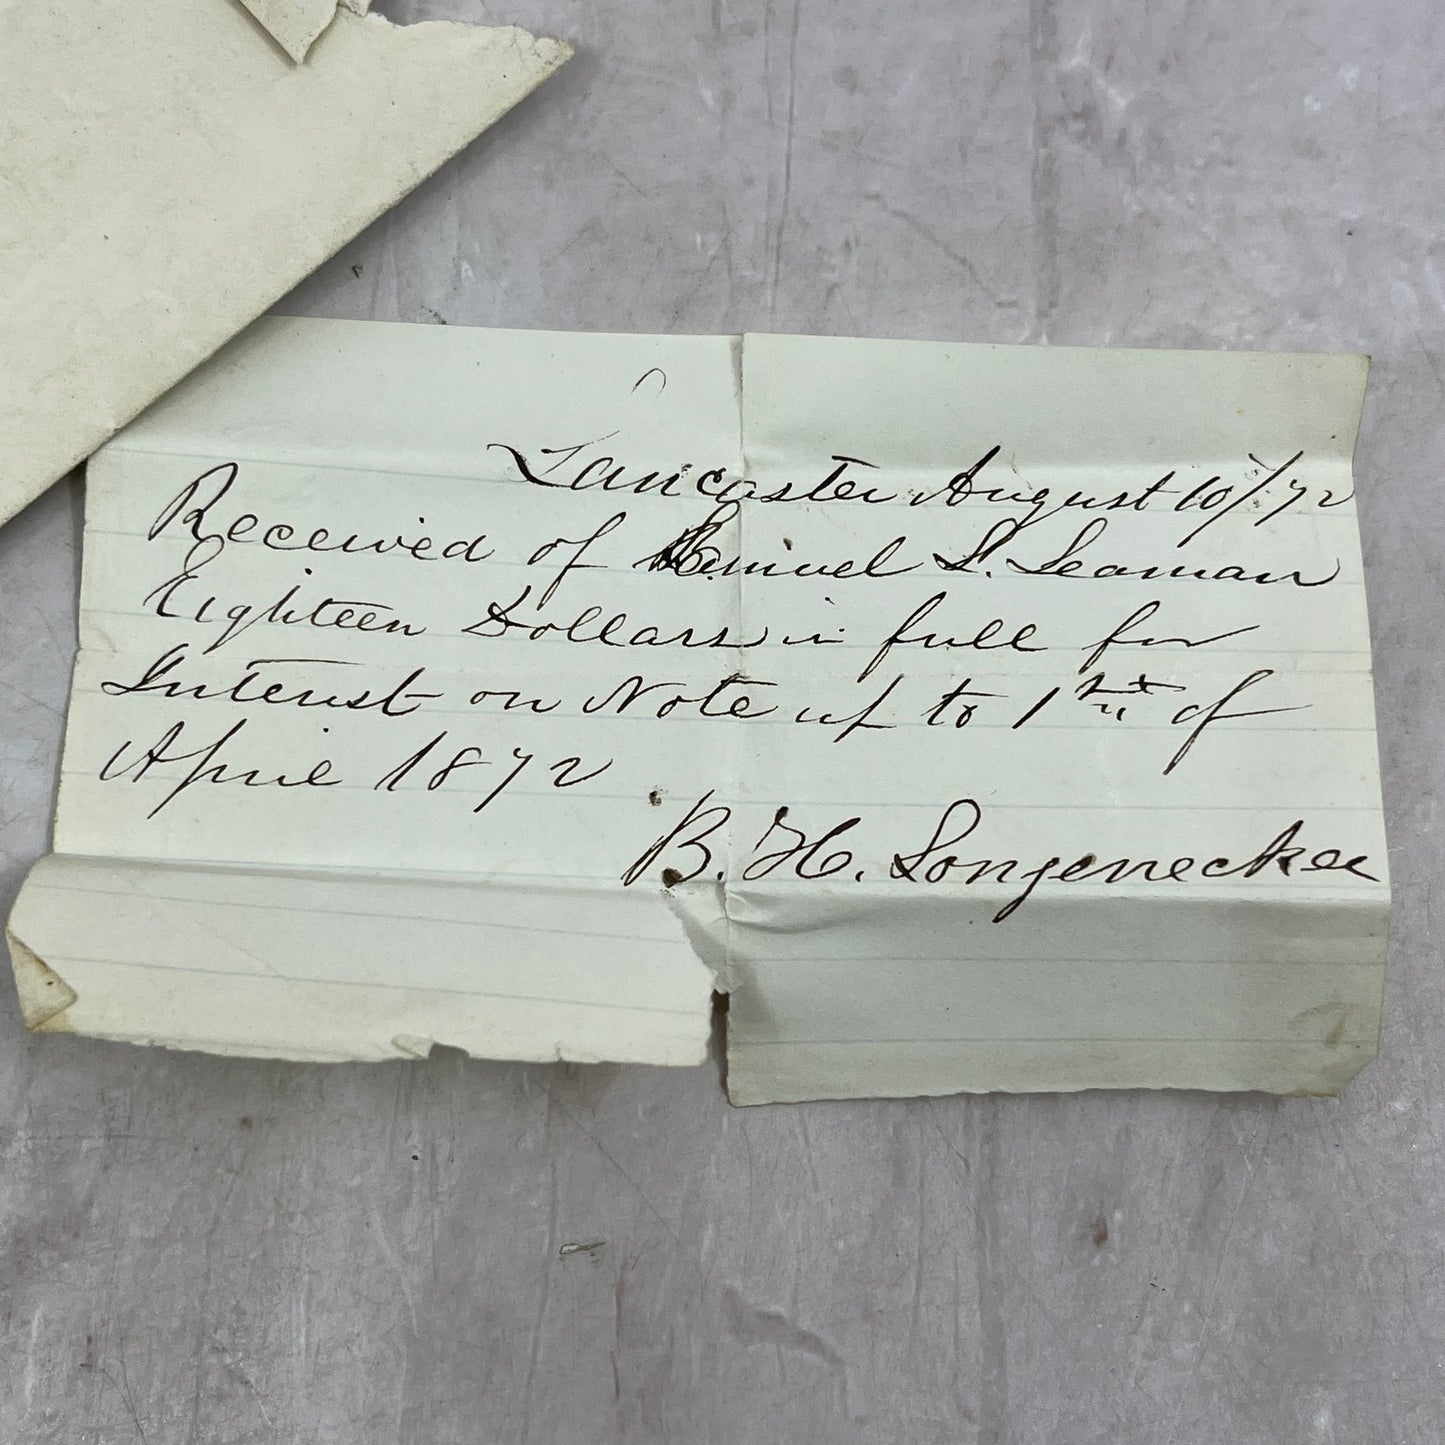 Lancaster August 10/72
Received of Emiuel L. Leaman
Eighteen Dollars in full for
Interest on Note up to 1st of
April 1872
B. H. Longenecker